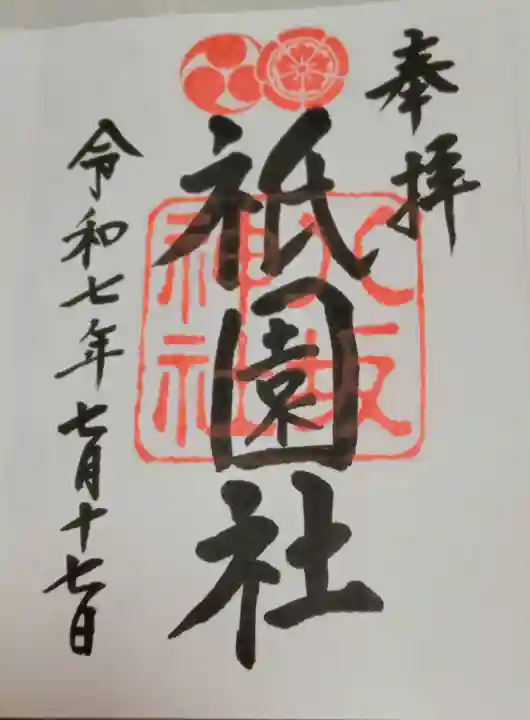 奉拝
祇園社
八坂
神社
令和七年七月十七日